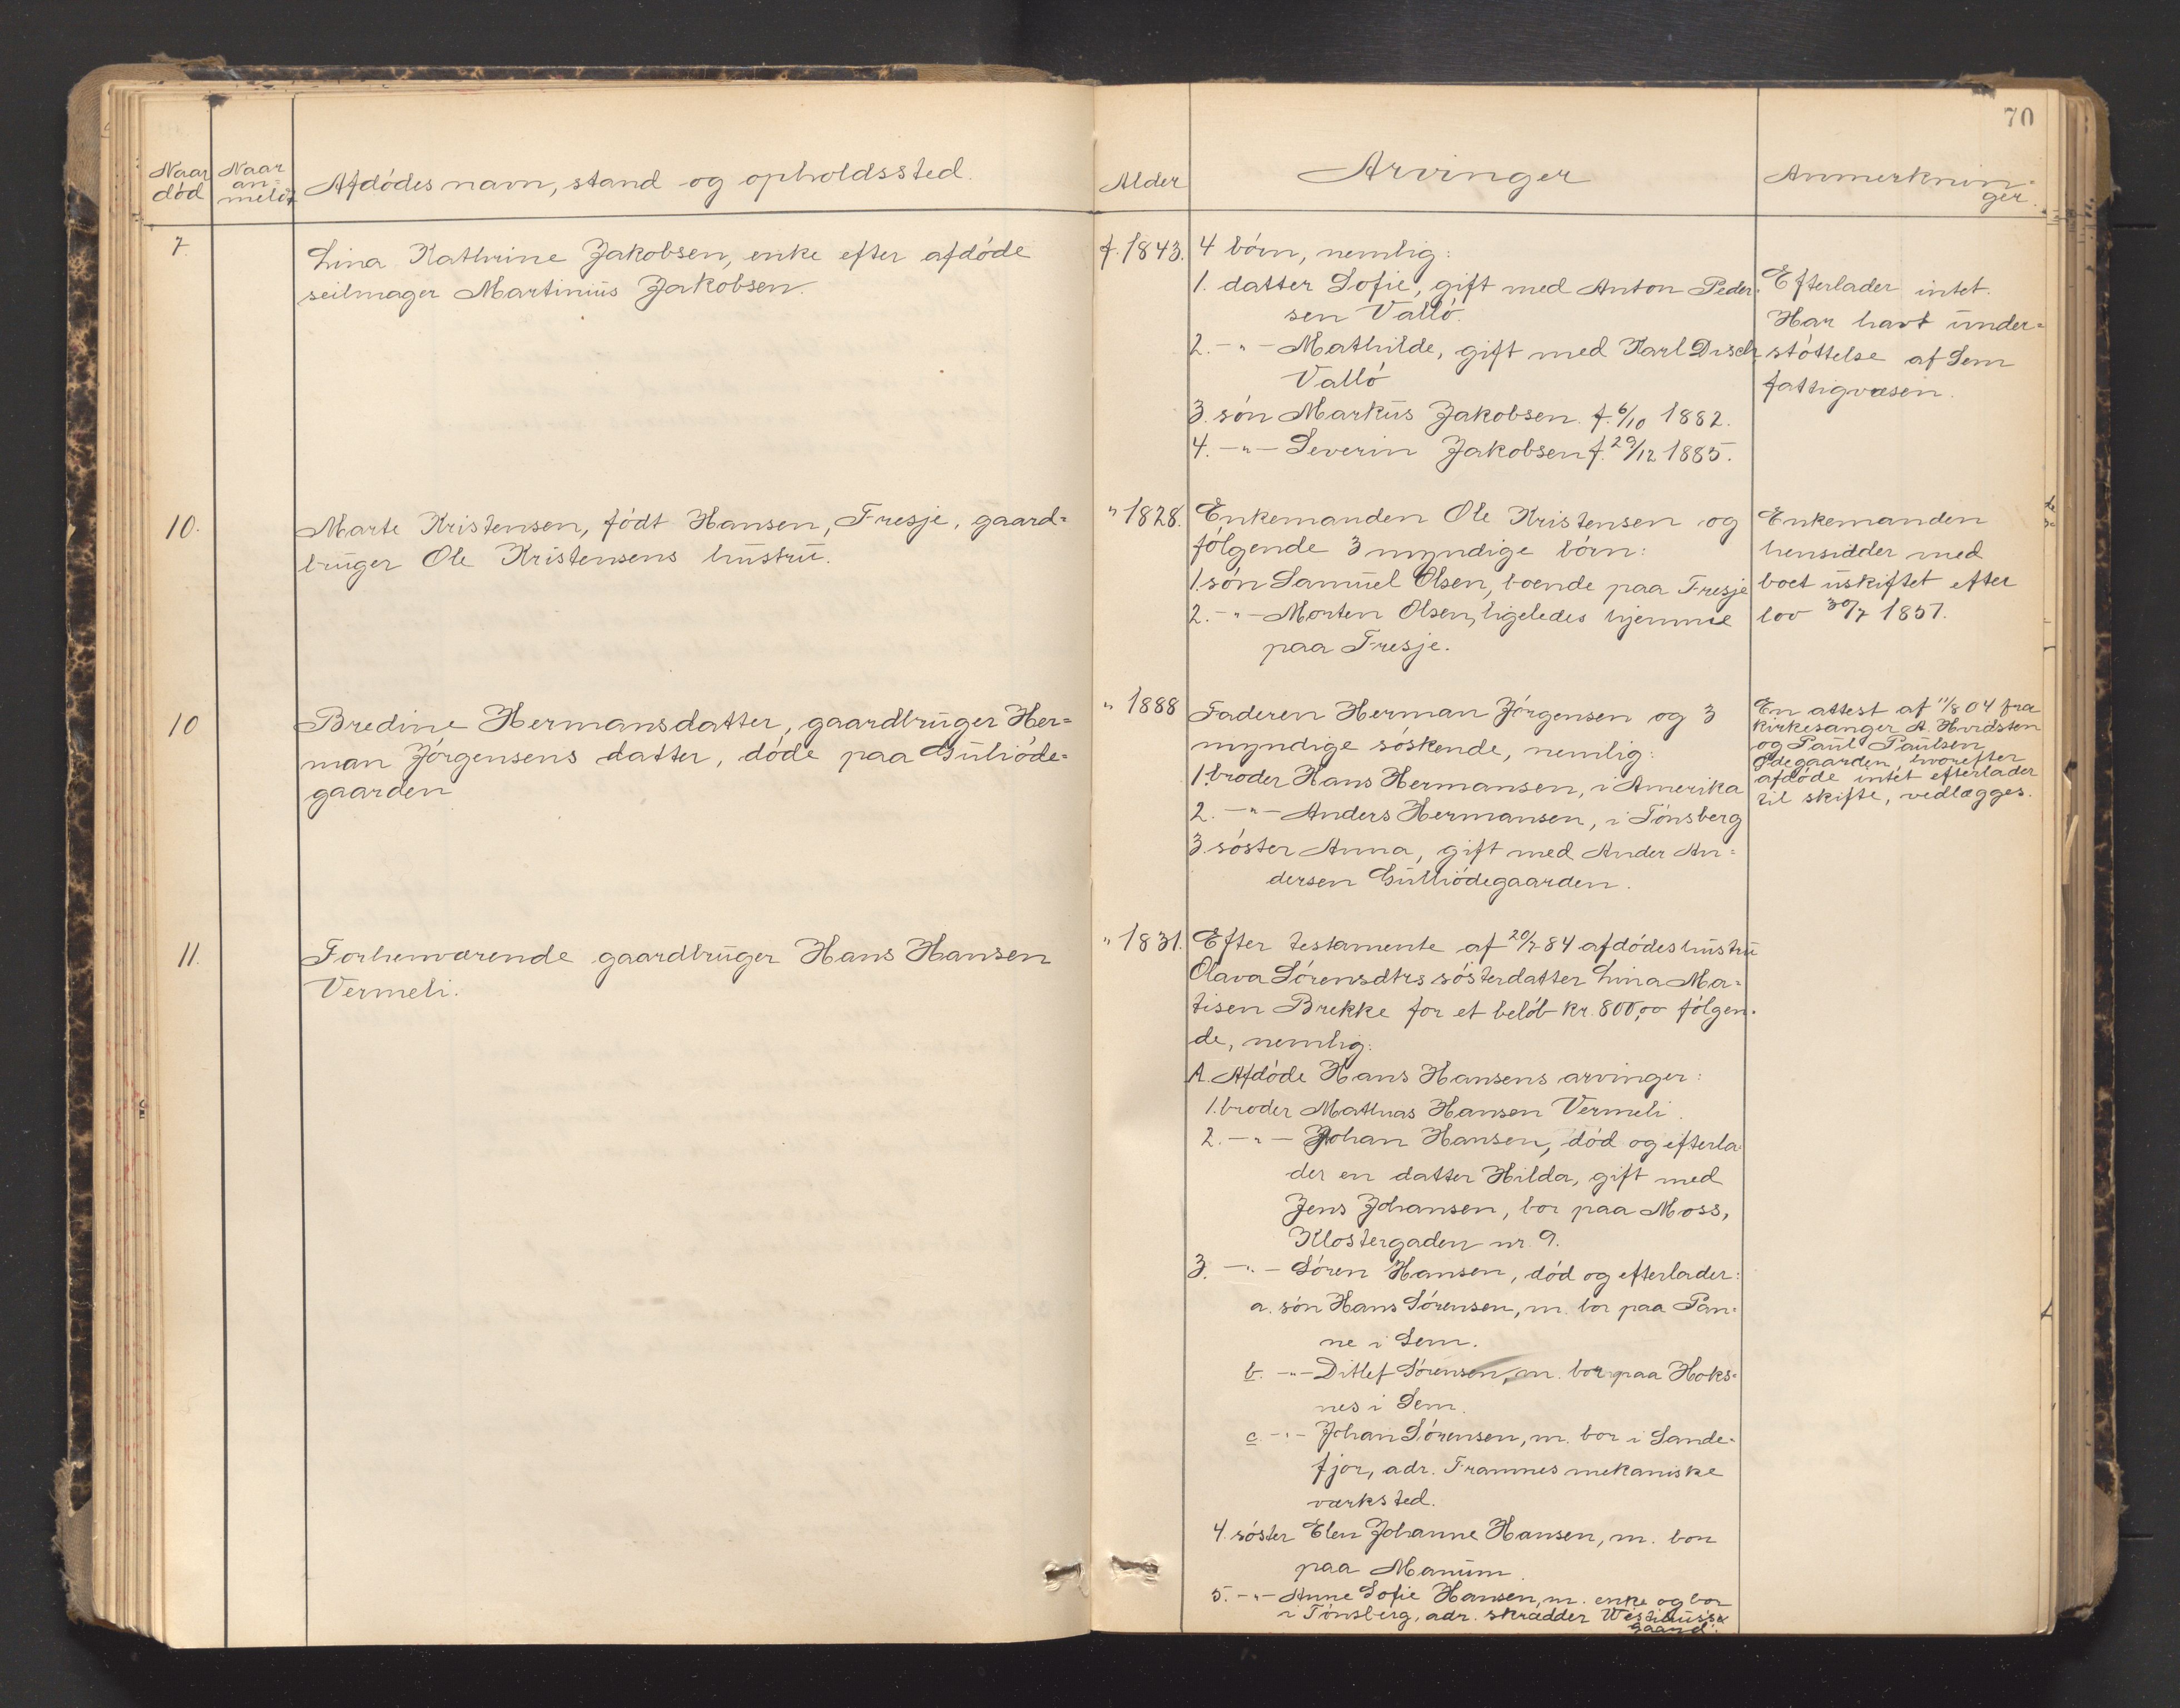 70
Naar død
Naar an=meldt
Afdødes navn, stand og opholdssted.
Alder
Arvinger
Anmerknin=
ger.
7.
Lina Kathrine Jakobsen, enke efter afdøde
seilmager Martinius Jakobsen.
f. 1843.
4 børn, nemlig:
1. datter Sofie, gift med Anton Peder=
sen Vallø.
2. -"- Mathilde, gift med Karl Disch
Vallø
3. søn Markus Jakobsen. f. 6/10 1882.
4. -"- Severin Jakobsen f. 29/12 1885.
Efterlader intet.
Har havt under=
støttelse af Sem
fattigvæsen.
10.
Marte Kristensen, født Hansen, Fresje, gaard=
bruger Ole Kristensens hustru.
" 1828.
Enkemanden Ole Kristensen og
følgende 3 myndige børn:
1. søn Samuel Olsen, boende paa Fresje
2. -"- Morten Olsen, ligeledes hjemme
paa Fresje.
Enkemanden
hensidder med
boet uskiftet efter
lov 30/7 1851.
10
Bredine Hermansdatter, gaardbruger Her=
man Jørgensens datter, døde paa Guliøde=
gaarden
" 1888
Faderen Herman Jørgensen og 3
myndige søskende, nemlig:
1. broder Hans Hermansen, i Amerika
2. -"- Anders Hermansen, i Tønsberg
3. søster Anna, gift med Ander An=
dersen Gulliødegaarden.
En attest af 11/8 04 fra
kirkesanger A. Hvidsten
og Paul Paulsen
Ødegaarden, hvorefter
afdøde intet efterlader
til skifte, vedlægges.
11.
Forhenværende gaardbruger Hans Hansen
Vermeli.
" 1831.
Efter testamente af 20/7 84 afdødes hustru
Olava Sørensdtrs søsterdatter Lina Ma=
tisen Brekke for et beløb kr. 800,00 følgen=
de, nemlig:
A. Afdøde Hans Hansens arvinger:
1. broder Mathias Hansen Vermeli.
2. -"- Johan Hansen, død og efterla=
der en datter Hilda, gift med
Jens Johansen, bor paa Moss,
Klostergaden nr. 9.
3. -"- Søren Hansen, død og efterlader:
a. søn Hans Sørensen, m. bor paa Pan=
ne i Sem.
b. -"- Ditlef Sørensen, m. bor paa Hoks=
nes i Sem.
c. -"- Johan Sørensen, m. bor i Sande=
fjor, adr. Framnes mekaniske
værksted.
4. søster Elen Johanne Hansen, m. bor
paa Manum.
5. -"- Anne Sofie Hansen, m. enke og bor
i Tønsberg, adr. skrædder
gaard.